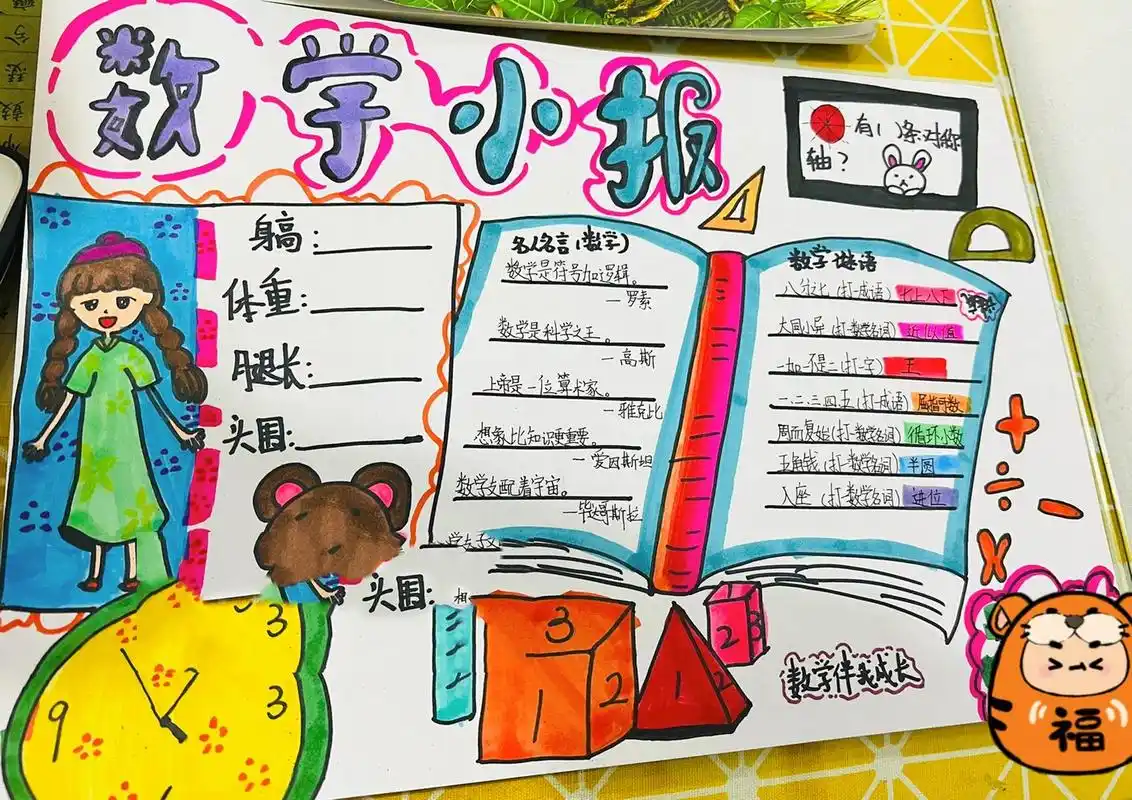 数学小报
有( )条对称
轴？
身高：
体重：
腿长：
头围：
头围：
名人名言(数学)
数学是符号加逻辑。
—罗素
数学是科学之王。
—高斯
上帝是一位算术家。
—雅克比
想象比知识更重要。
—爱因斯坦
数学支配着宇宙。
—毕达哥斯拉
数学谜语
八分之七(打一成语) 七上八下
大同小异(打一数学名词) 近似值
一加一不是二(打一字) 王
一.二.三.四.五(打一成语) 屈指可数
周而复始(打一数学名词) 循环小数
五角钱(打一数学名词) 半圆
入座(打一数学名词) 进位
+
÷ -
×
3
3
9
3
1 2
1 2
2 3
数学伴我成长
福